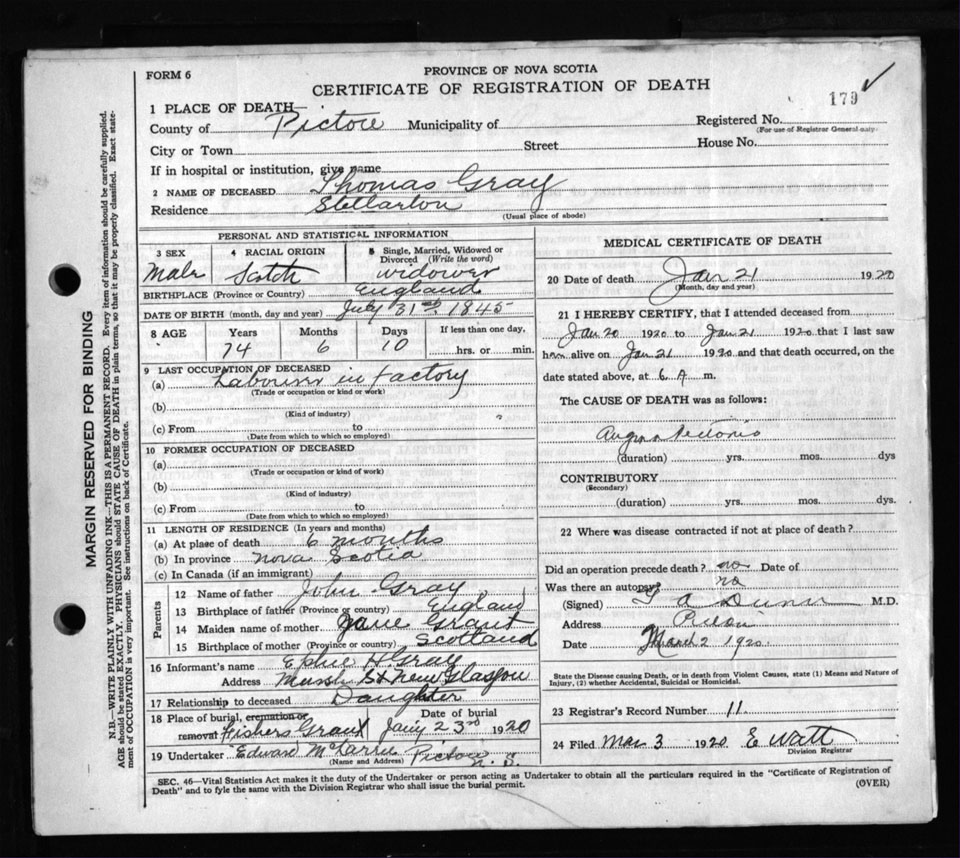 FORM 6
PROVINCE OF NOVA SCOTIA
CERTIFICATE OF REGISTRATION OF DEATH
179
1 PLACE OF DEATH—
County of Pictou Municipality of Registered No.
(For use of Registrar General only)
City or Town Street House No.
If in hospital or institution, give name
2 NAME OF DECEASED Thomas Gray
Residence Stellarton
(Usual place of abode)
PERSONAL AND STATISTICAL INFORMATION
3 SEX 4 RACIAL ORIGIN 5 Single, Married, Widowed or Divorced (Write the word)
Male Scotch widower
BIRTHPLACE (Province or Country) England
DATE OF BIRTH (month, day and year) July 31st 1845
8 AGE Years Months Days If less than one day.
74 6 10 hrs. or min.
9 LAST OCCUPATION OF DECEASED
(a) Labourer in factory
(Trade or occupation or kind or work)
(b)
(Kind of industry)
(c) From to
(Date from which to which so employed)
10 FORMER OCCUPATION OF DECEASED
(a)
(Trade or occupation or kind of work)
(b)
(Kind of industry)
(c) From to
(Date from which to which so employed)
11 LENGTH OF RESIDENCE (In years and months)
(a) At place of death 6 months
(b) In province Nova Scotia
(c) In Canada (if an immigrant)
Parents
12 Name of father John Gray
13 Birthplace of father (Province or country) England
14 Maiden name of mother Jane Grant
15 Birthplace of mother (Province or country) Scotland
16 Informant's name H. Gray
Address Marsh St New Glasgow
17 Relationship to deceased Daughter
18 Place of burial, cremation or removal Fishers Grant
Date of burial Jany 23rd 1920
19 Undertaker Edward Pictou N. S.
(Name and Address)
MEDICAL CERTIFICATE OF DEATH
20 Date of death Jan 21 1920
(Month, day and year)
21 I HEREBY CERTIFY, that I attended deceased from
Jan 20 1920 to Jan 21 1920 that I last saw
him alive on Jan 21 1920 and that death occurred, on the
date stated above, at 6 A m.
The CAUSE OF DEATH was as follows:
Angina Pectoris
(duration) yrs. mos. dys
CONTRIBUTORY
(Secondary)
(duration) yrs. mos. dys.
22 Where was disease contracted if not at place of death?
Did an operation precede death? no Date of
Was there an autopsy? no
(Signed) Dunn M.D.
Address Pictou
Date March 2 1920
State the Disease causing Death, or in death from Violent Causes, state (1) Means and Nature of
Injury, (2) whether Accidental, Suicidal or Homicidal.
23 Registrar's Record Number 11
24 Filed Mar 3 1920 E Watt
Division Registrar
SEC. 46—Vital Statistics Act makes it the duty of the Undertaker or person acting as Undertaker to obtain all the particulars required in the "Certificate of Registration of
Death" and to fyle the same with the Division Registrar who shall issue the burial permit.
(OVER)
MARGIN RESERVED FOR BINDING
N.B.—WRITE PLAINLY WITH UNFADING INK—THIS IS A PERMANENT RECORD. Every item of information should be carefully supplied.
AGE should be stated EXACTLY. PHYSICIANS should STATE CAUSE OF DEATH in plain terms, so that it may be properly classified. Exact statement of OCCUPATION is very important. See instructions on back of Certificate.